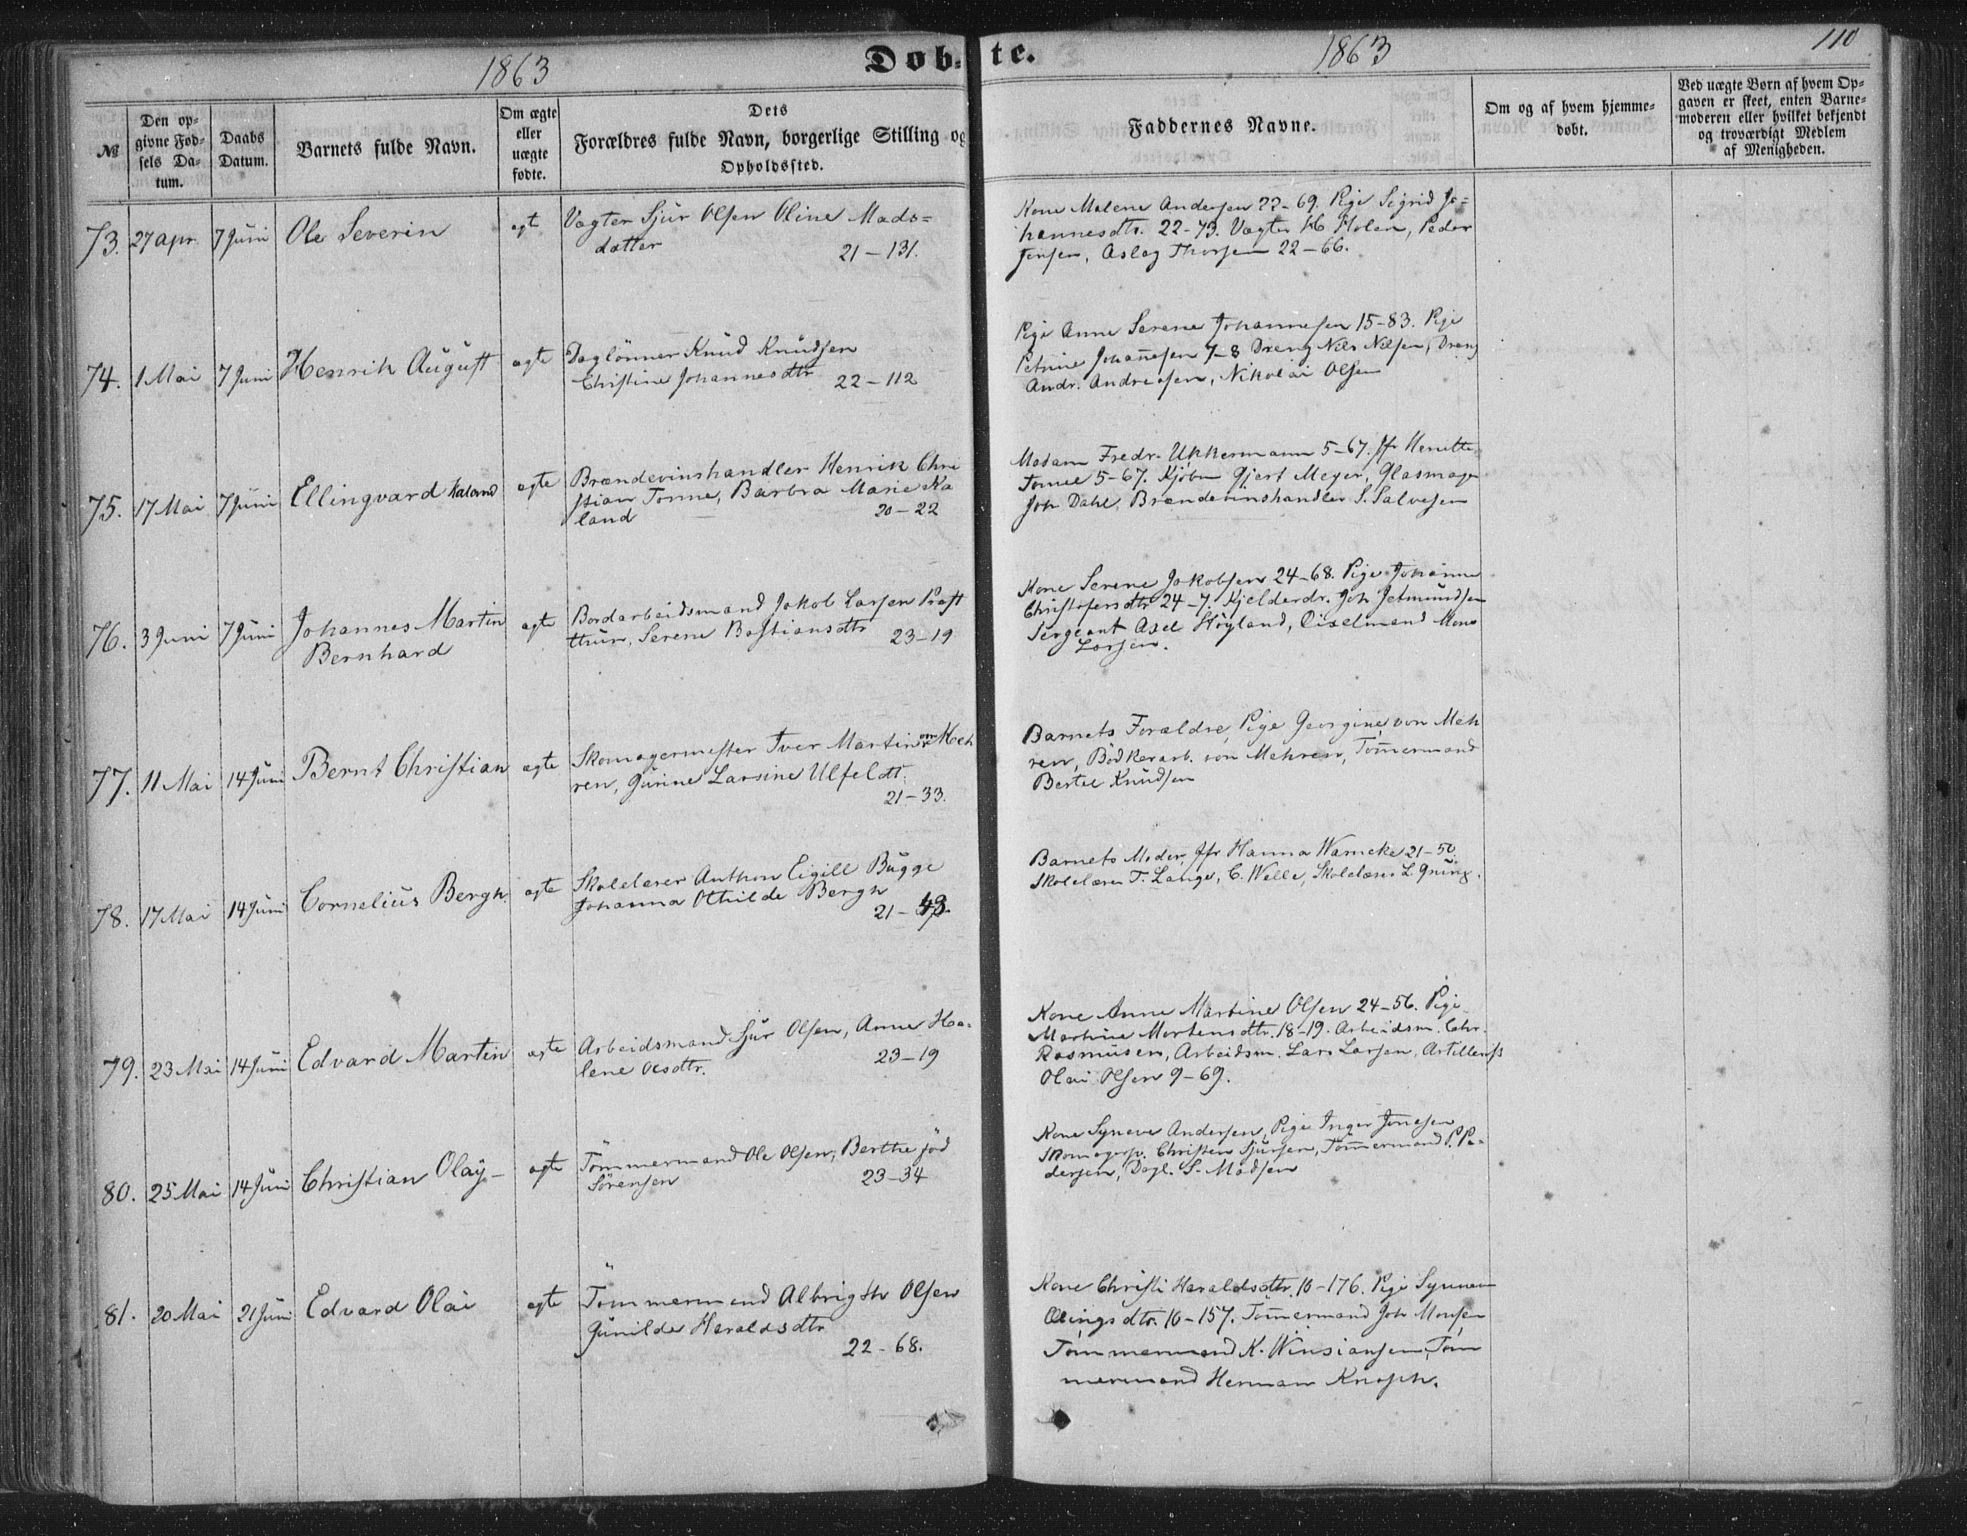 1863
Døb-
te.
1863
110
№
Den op-
givne Fød-
sels Da-
tum.
Daabs
Datum.
Barnets fulde Navn.
Om ægte
eller
uægte
fødte.
Dets
Forældres fulde Navn, borgerlige Stilling og
Opholdssted.
Faddernes Navne.
Om og af hvem hjemme-
døbt.
Ved uægte Børn af hvem Op-
gaven er skeet, enten Barne-
moderen eller hvilket bekjendt
og troværdigt Medlem
af Menigheden.
73. 27 apr. 7 Juni Ole Severin egt Vægter Sjur Olsen Oline Mads-
datter
21 – 131.
Kone Malene Andersen 22–69. Pige Sigrid Jo-
hannesdtr. 22–73. Vægter Holen, Peder
Jensen, Aslag Thorsen 22–66.
74. 1 Mai 7 Juni Henrik August egte Daglönner Knud Knudsen
Christine Johannesdtr
22 – 112
Pige Anne Serene Johannesen 15–83. Pige
Petrine Johanesen 7–8 Dreng Nils Nilsen, Dreng
Andr. Andreasen, Nikolai Olsen
75. 17 Mai 7 Juni Ellingvard Kaland egte Brændevinshandler Henrik Chri
stian Tonne, Barbra Marie Ka
land
20 – 22
Madam Fredr. Ukkermann 5–67. Jfr Henitte
Tonne 5–67. Kjöbm Gjert Meyer, Glasmager
Joh Dahl, Brændevinshandler S. Salvesen
76. 3 Juni 7 Juni Johannes Martin
Bernhard
egte Bordarbeidsmand Jakob Larsen Præst
thun, Serene Bastiansdtr
23–19
Kone Serene Jakobsen 24–68. Pige Johanne
Christofersdtr 24–7. Kjelderdr. Joh Jetmundsen
Sergeant Axel Höyland, Diselmand Mons
Larsen.
77. 11 Mai 14 Juni Bernt Christian egte Skomagermester Iver Martin von Meh
ren, Gurine Larsine Ulfeldt.
21–33.
Barnets Forældre, Pige Georgine von Meh
ren, Bödkerarb. von Mehren, Tömmermand
Bertel Knudsen
78. 17 Mai 14 Juni Cornelius Bergh. egte Skolelærer Anthon Eigill Bugge
Johanna Othilde Bergh
21–43.
Barnets Moder, Jfr Hanna Warncke 21–50.
Skolelærer T. Lange, C. Welle, Skolelærer L. Gruny.
79. 23 Mai 14 Juni Edvard Martin egte Arbeidsmand Sjur Olsen, Anne Ha-
lene Olsdtr.
23–19
Kone Anne Martine Olsen 24–56. Pige
Martine Mortensdtr. 18–19. Arbeidsm. Chr.
Rasmusen, Arbeidsm. Lars Larsen, Artillerist
Olai Olsen 9–69.
80. 25 Mai 14 Juni Christian Olay– egte Tömmermand Ole Olsen, Berthe föd
Sörensen
23–34
Kone Syneve Andersen, Pige Inger Jonesen
Skomagersv. Christen Sjursen, Tömmermand P. Pe-
dersen, Dagl. S. Madsen
81. 20 Mai 21 Juni Edvard Olai egte Tömmermand Albrigth Olsen
Gunilde Heraldsdtr
22–68.
Kone Christi Heraldsdtr. 10–176. Pige Synneve
Ellingsdtr. 10–157. Tömmermand Joh Monsen
Tömmermand K. Winsiansen, Töm
mermand Herman Knoph.